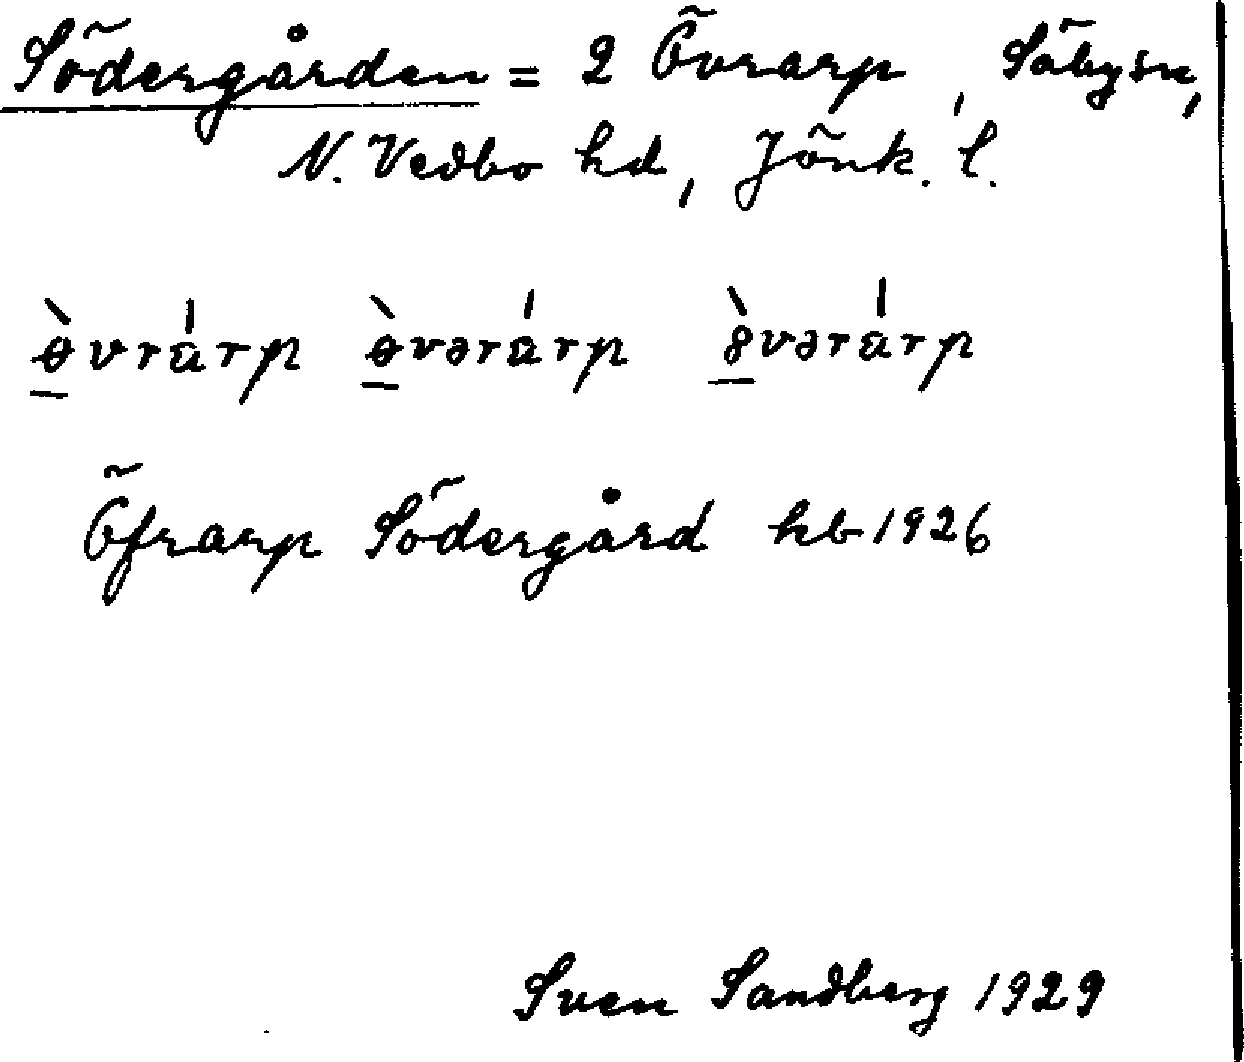 Södergården = 2 Övrarp, Säby sn,
N. Vedbo hd, Jönk. l.
ɵ̀vrárp ɵ̀vərárp 8̀vərárp
Öfrarp Södergård hb 1926
Sven Sandberg 1929